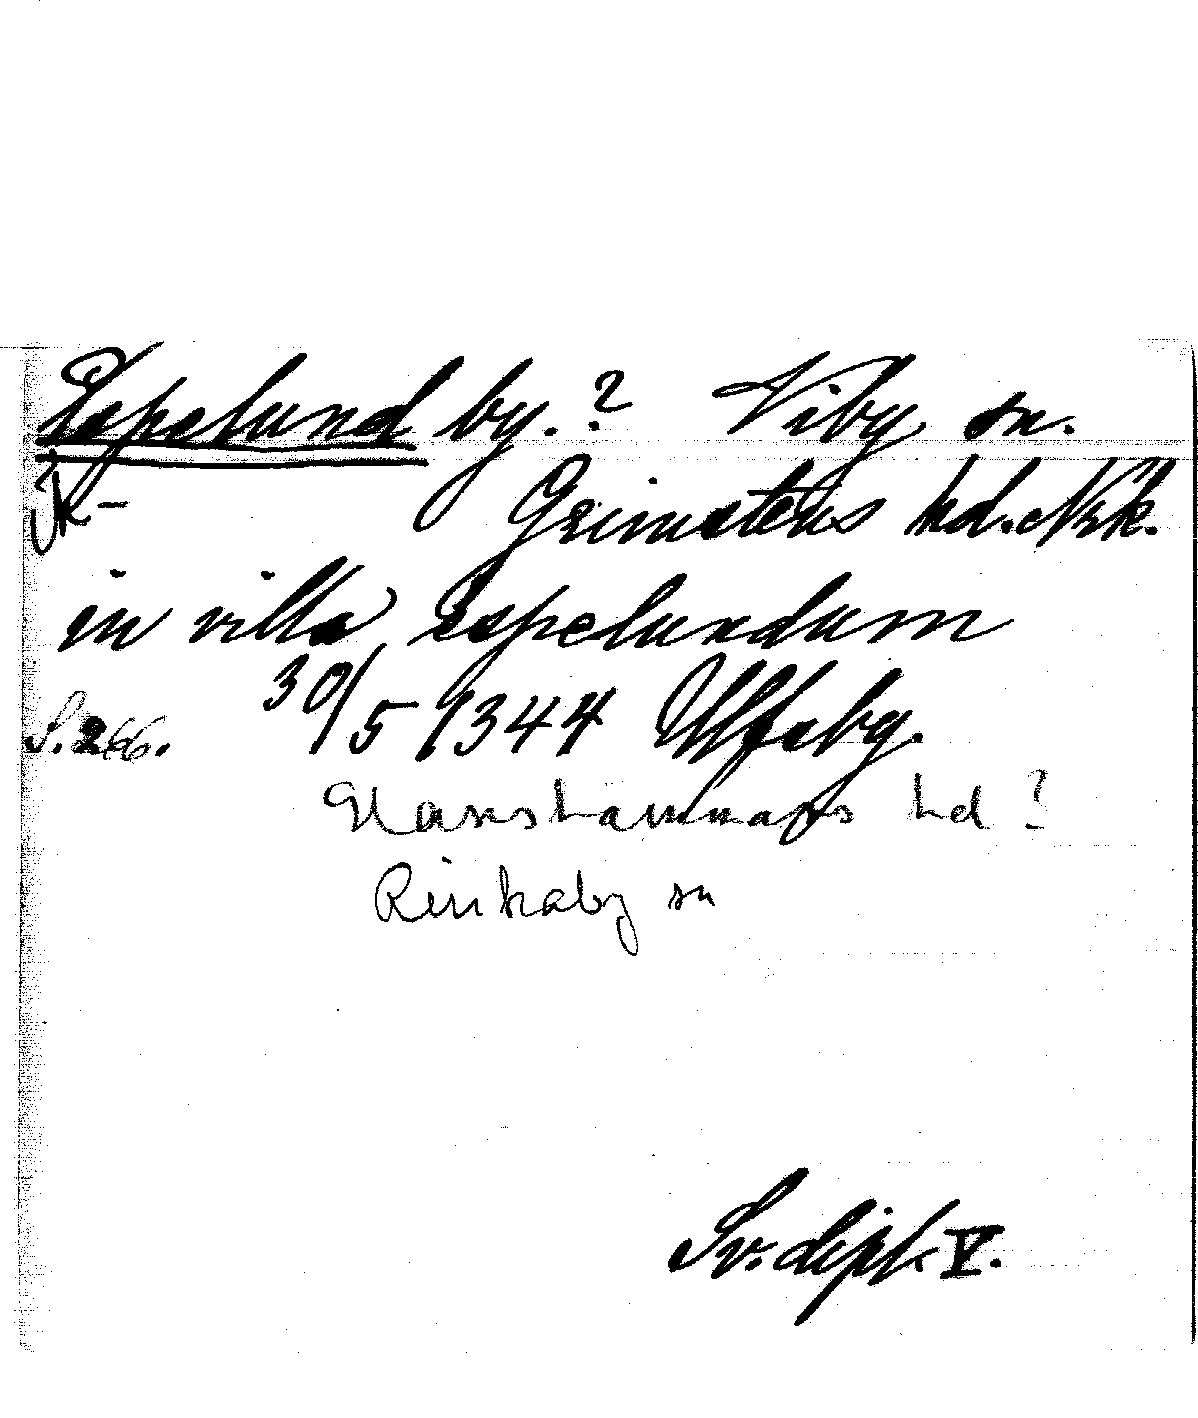 Espelund by.? Viby sn.
Grimstens hd. Nrk.
in villa espelundum
S. 266. 30/5 1344 Ulfaby.
Glanshammars hd?
Rinkaby sn
Sv. dipl. V.